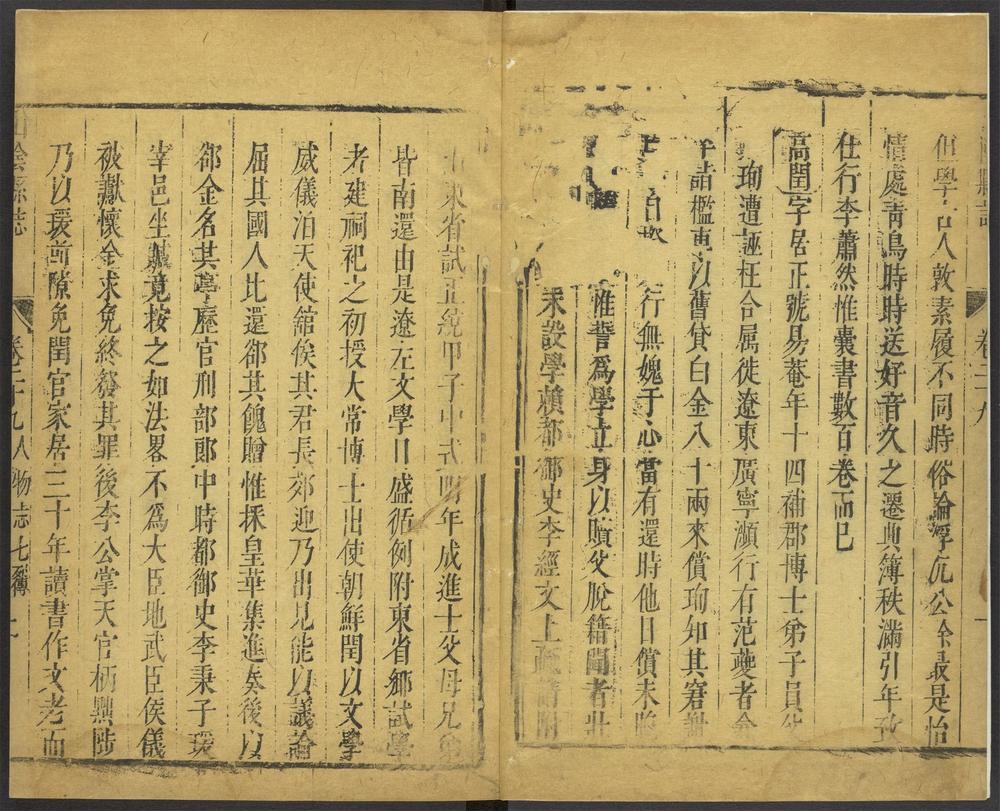 但學古人敦素履不同時俗論浮沉公余最是怡
情處靑鳥時時送好音久之遷典簿秩滿引年致
仕行李蕭然惟囊書數百卷而巳
高閏字居正號易菴年十四補郡博士弟子員
珣遭誣枉合屬徙遼東廣寧瀕行有范夔者
詣檻車以舊貸白金八十兩來償珣如其窘
行無媿于心當有還時他日償未
惟誓爲學立身以贖父脫籍聞者壯
未設學頼都御史李經文上疏
東省試正統甲子中式明年成進士父母兄弟
皆南還由是遼左文學日盛循例附東省鄉試學
者建祠祀之初授大常博士出使朝鮮閏以文學
威儀泊天使舘俟其君長郊迎乃出見能以議論
屈其國人比還郤其餽贈惟採皇華集進奏後以
郤金名其亭歷官刑部郎中時都御史李秉子瑗
宰邑坐贓竟按之如法畧不爲大臣地武臣侯儀
被讞懷金求免終發其罪後李公掌天官柄黜陟
乃以瑗前隙免閏官家居三十年讀書作文老而
山陰縣志
卷二十九人物志七